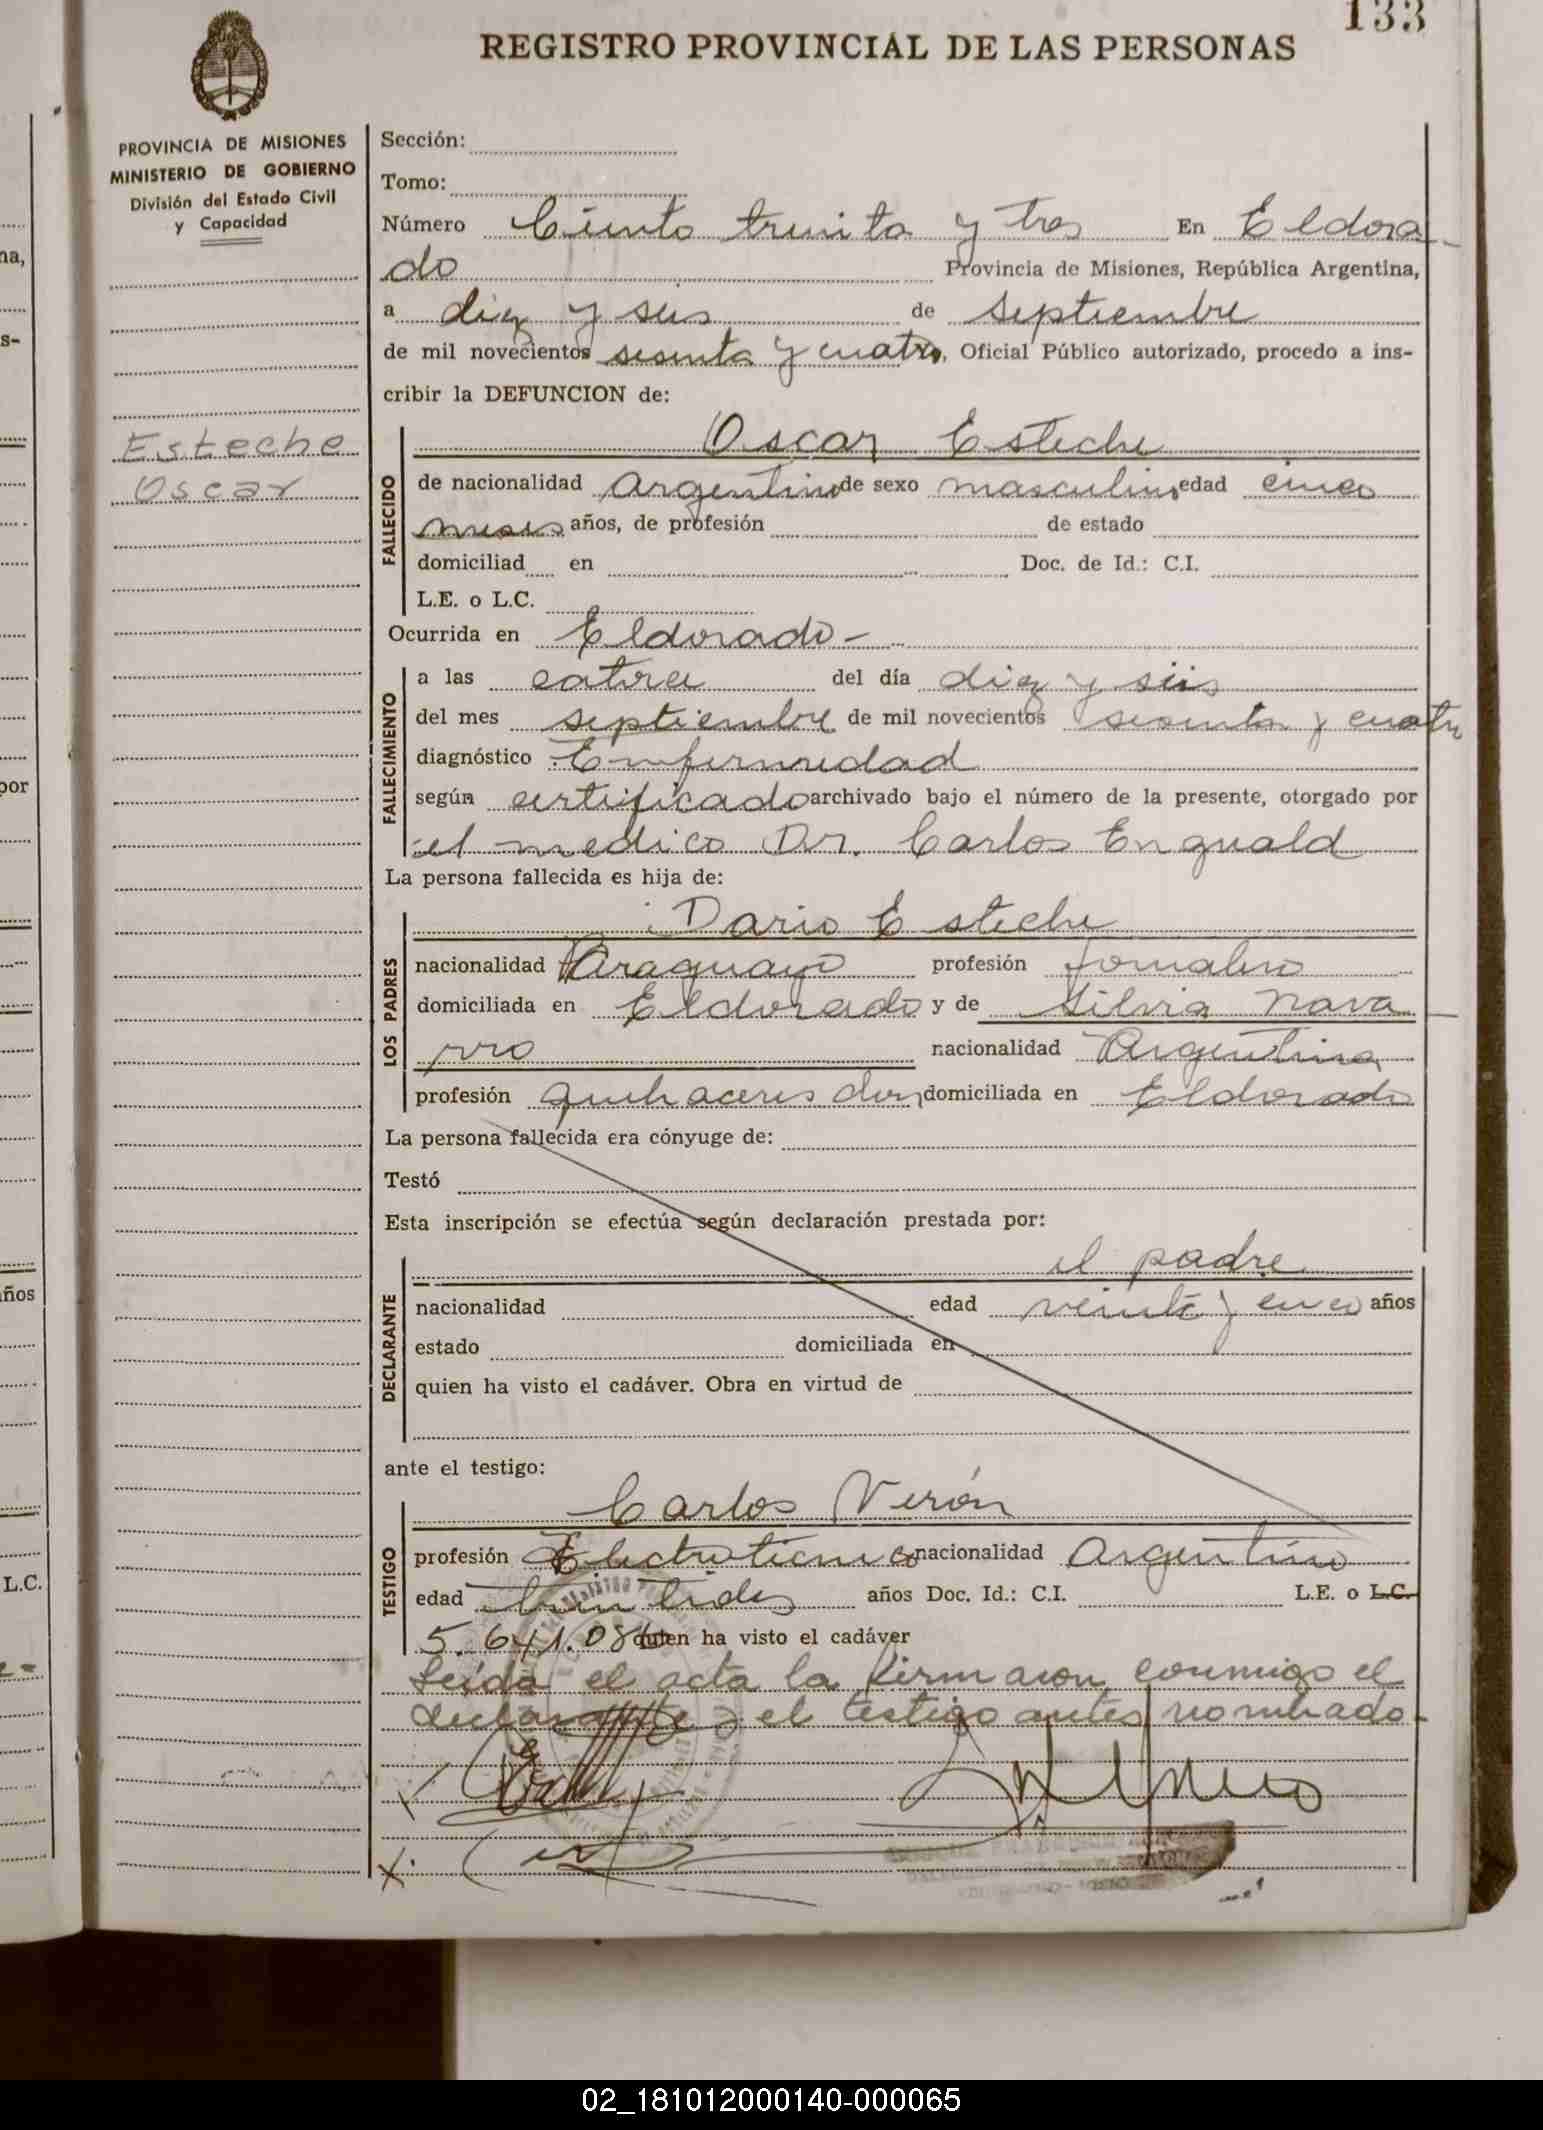 133
REGISTRO PROVINCIAL DE LAS PERSONAS
PROVINCIA DE MISIONES
MINISTERIO DE GOBIERNO
División del Estado Civil
y Capacidad
Esteche
Oscar
Sección:
Tomo:
Número Ciento treinta y tres En Eldora-
do Provincia de Misiones, República Argentina,
a diez y seis de septiembre
de mil novecientos sesenta y cuatro, Oficial Público autorizado, procedo a ins-
cribir la DEFUNCION de:
Oscar Esteche
FALLECIDO
de nacionalidad Argentino de sexo masculino edad cinco
meses años, de profesión de estado
domiciliad en Doc. de Id.: C.I.
L.E. o L.C.
Ocurrida en Eldorado-
FALLECIMIENTO
a las catorce del día diez y seis
del mes septiembre de mil novecientos sesenta y cuatro
diagnóstico Enfermedad
según certificado archivado bajo el número de la presente, otorgado por
el medico Dr. Carlos Enguald
La persona fallecida es hija de:
LOS PADRES
Dario Esteche
nacionalidad Paraguayo profesión jornalero
domiciliada en Eldorado y de Silvia Nava-
rro nacionalidad Argentina
profesión quehaceres dom domiciliada en Eldorado
La persona fallecida era cónyuge de:
Testó
Esta inscripción se efectúa según declaración prestada por:
DECLARANTE
el padre
nacionalidad edad veinte y cinco años
estado domiciliada en
quien ha visto el cadáver. Obra en virtud de
ante el testigo:
TESTIGO
Carlos Verón
profesión Electrotecnico nacionalidad Argentino
edad años Doc. Id.: C.I. L.E. o L.C.
5.641.086 quien ha visto el cadáver
Leída el acta la firmaron conmigo el
declarante y el testigo antes nombrado-
02_181012000140-000065